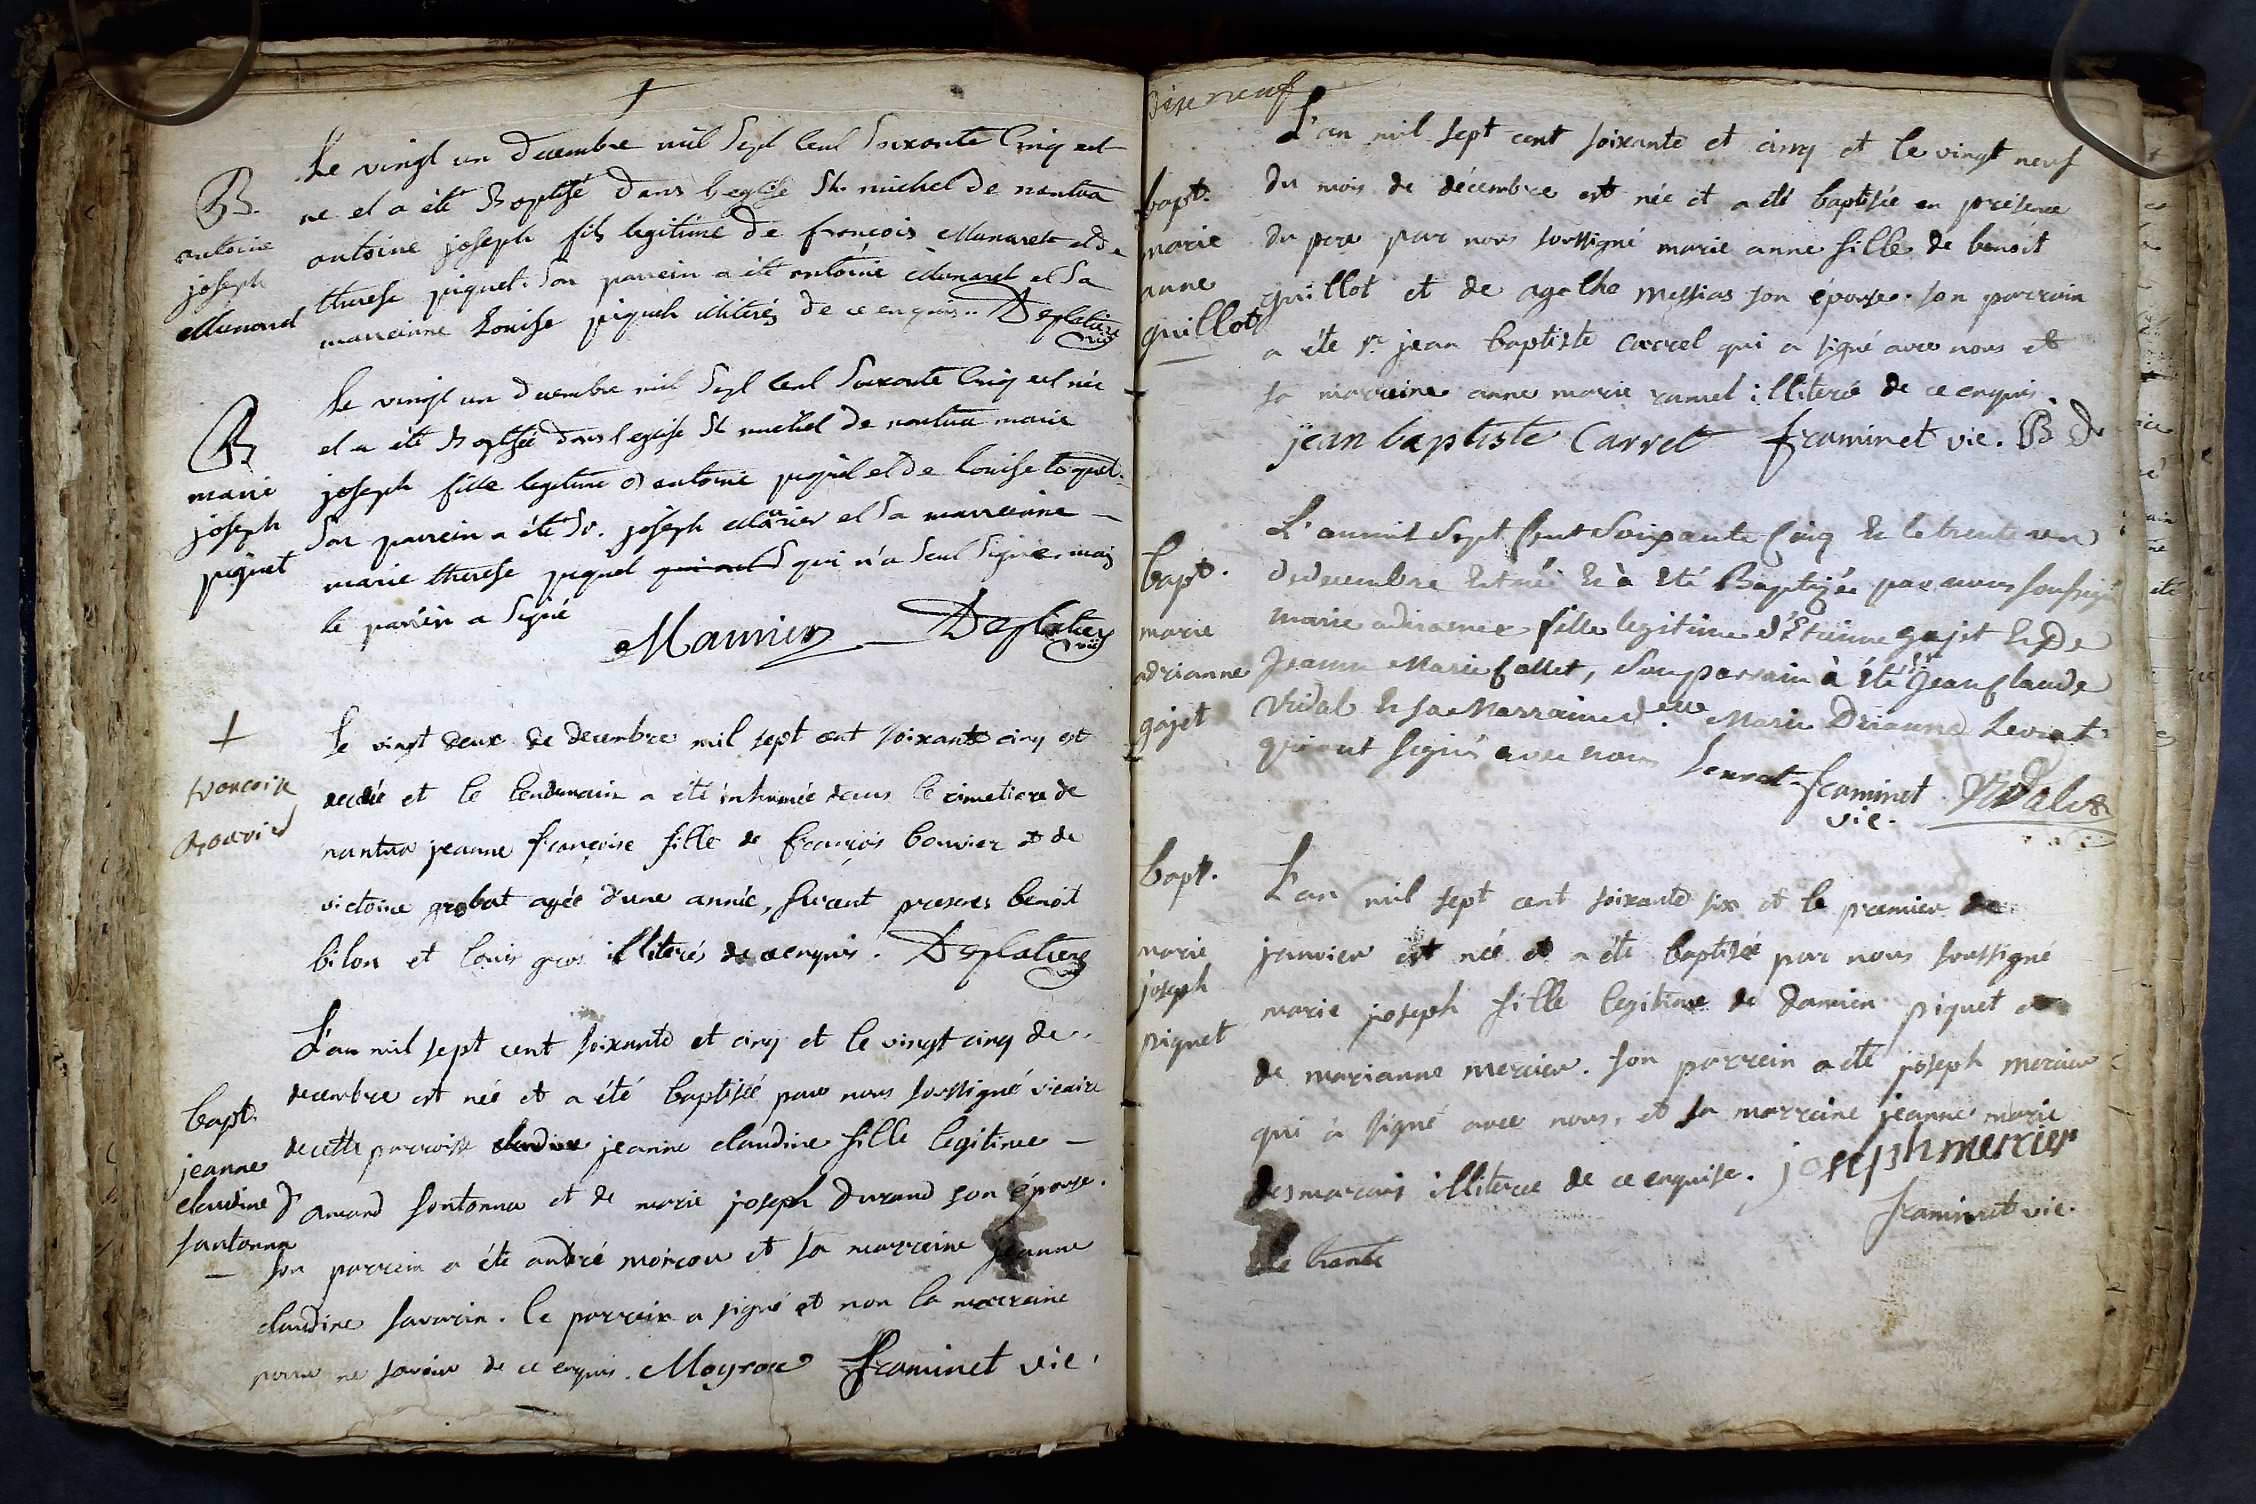 Le vingt un Decembre mil Sept Cent Soixante Cinq est
B.
ne et a été Baptisé Dans l'eglise St. michel De nantua
antoine
antoine joseph fils legitime De françois Munaret et De
joseph
therese piquet. Son parrein a été antoine Munaret et Sa
Munaret
marreinne Louise piquet illiterés de ce enquis.. Deplatiere
vic
Le vingt un Decembre mil Sept Cent Soixante Cinq est née
B
et a été Baptisée Dans l'eglise St michel De nantua marie
marie
joseph fille legitime D antoine piquet et De Louise toquet.
joseph
Son parrein a été Sr. joseph Maurier et Sa marreinne
piquet
marie therese piquet qui n'a Seul Signé mais
le parrein a Signé
Maurier Deplatiere
vic
Le vingt deux de decembre mil sept cent soixante cinq est
françoise
decedée et le lendemain a été inhumée dans le cimetiere de
Bouvier
nantua jeanne françoise fille de françois bouvier et de
victoire grobat agée d'une année, furent presens benoit
bilon et louis gros illiterés de ce enquis. Deplatiere
L'an mil sept cent soixante et cinq et le vingt cinq de
decembre est née et a été baptisée par nous soussigné vicaire
bapt.
de cette parroisse claudine jeanne claudine fille legitime
jeanne
claudine
d'amand santonna et de marie joseph durand son épouse.
santonna
son parrein a été andré moirou et sa marreine jeanne
claudine savarin. le parrein a signé et non la marreine
pour ne savoir de ce enquis. Moyrou framinet vic.
dixe neuf
L'an mil sept cent soixante et cinq et le vingt neuf
bapt.
du mois de décembre est née et a été baptisée en présence
marie
du pere par nous soussigné marie anne fille de benoit
anne
guillot et de agathe messias son épouse. son parrain
guillot
a été sr jean baptiste carrel qui a signé avec nous et
sa marraine anne marie ramel illiterée de ce enquis.
jean baptiste Carrel framinet vic. B D
L'an mil Sept Cent Soixante Cinq & le trente un
bapt.
de decembre Est née & à Eté Baptizée par nous soussigné
marie
marie adrianne fille legitime d'Étienne gojet & De
adrianne
Jeanne Marie Collet, Son parrain à été Sr Jean Claude
gojet
Vidal & sa Marraine dlle Marie Drianne Levrat
qui ont signé avec nous Levrat framinet Vidal
vic.
bapt.
L'an mil sept cent soixante six et le premier de
marie
janvier est née et a été baptisée par nous soussigné
joseph
marie joseph fille legitime de damien piquet et
piquet
de marianne mercier. son parrein a été joseph mercier
qui à signé avec nous, et sa marraine jeanne marie
desmarais illiterée de ce enquise. joseph mercier
framinet vic.
le trente